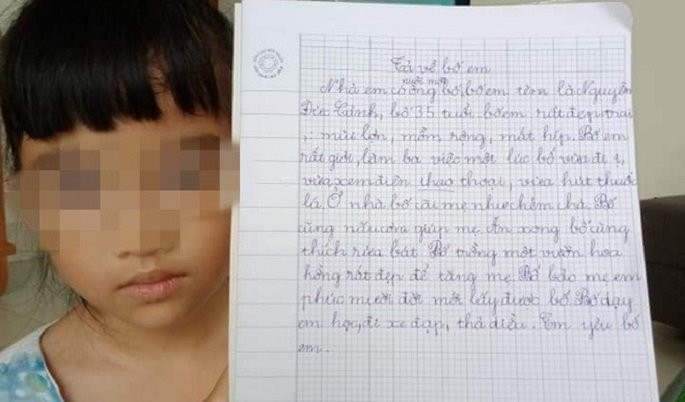 Tả về bố em
Nhà em có nuôi một ông bố, bố em tên là Nguyễn
Đức Cảnh, bố 35 tuổi bố em rất đẹp trai
,: mũi lớn, mồm rộng, mắt híp. Bố em
rất giỏi, làm ba việc một lúc bố vừa đi ị,
vừa xem điện thạo thoại, vừa hút thuốc
lá. Ở nhà bố cãi mẹ như chém chả. Bố
cũng nấu cơm giúp mẹ. Ăn xong bố cũng
thích rửa bát. Bố trồng một vườn hoa
hồng rất đẹp để tặng mẹ. Bố bảo mẹ em
phúc mười đời mới lấy được bố. Bố dạy
em học, đi xe đạp, thả diều. Em yêu bố
em.